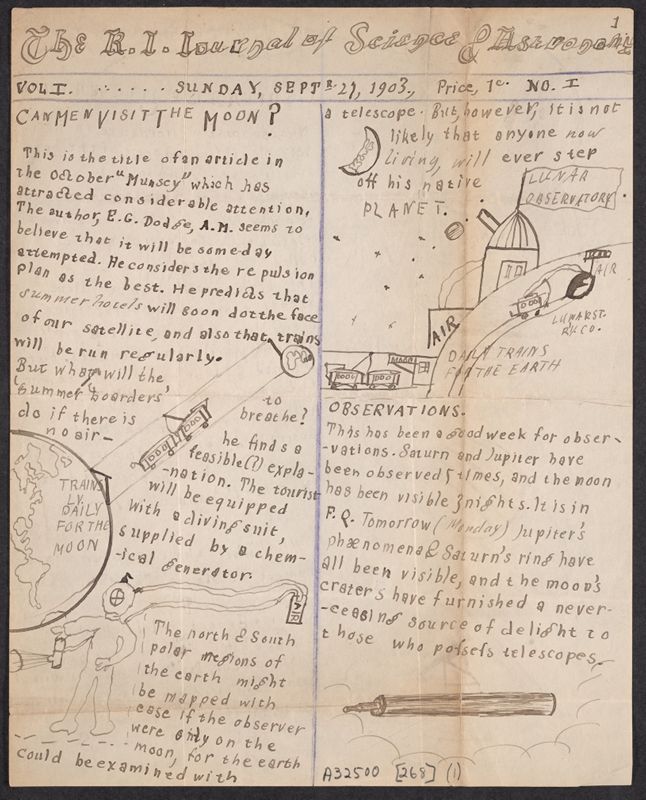 1
The R.I. Journal of Science & Astronomy
VOL I. ...... SUNDAY, SEPTR 27, 1903., Price, 1c. NO. I
CAN MEN VISIT THE MOON?
This is the title of an article in
the October "Munsey" which has
attracted considerable attention.
The author, E.G. Dodge, A.M. seems to
believe that it will be some day
attempted. He considers the repulsion
plan as the best. He predicts that
summer hotels will soon dot the face
of our satellite, and also that trains
will be run regularly.
But what will the
"summer boarders"
do if there is
no air—
to
breathe?
he finds a
feasible(?) expla-
-nation. The tourist
will be equipped
with a diving suit,
supplied by a chem-
-ical generator.
TRAINS
LV.
DAILY
FOR THE
MOON
AIR
The north & South
polar regions of
the earth might
be mapped with
ease if the observer
were only on the
moon, for the earth
could be examined with
a telescope. But, however, it is not
likely that anyone now
living, will ever step
off his native
PLANET.
LUNAR
OBSERVATORY
AIR
LUNAR ST.
RY. CO.
AIR
MOON
DAILY TRAINS
FOR THE EARTH
OBSERVATIONS.
This has been a good week for obser-
-vations. Saturn and Jupiter have
been observed 5 times, and the moon
has been visible 3 nights. It is in
F.Q. Tomorrow (Monday) Jupiter's
phænomena & Saturn's ring have
all been visible, and the moon's
craters have furnished a never-
-ceasing source of delight to
those who possess telescopes.
A32500 [268] (1)